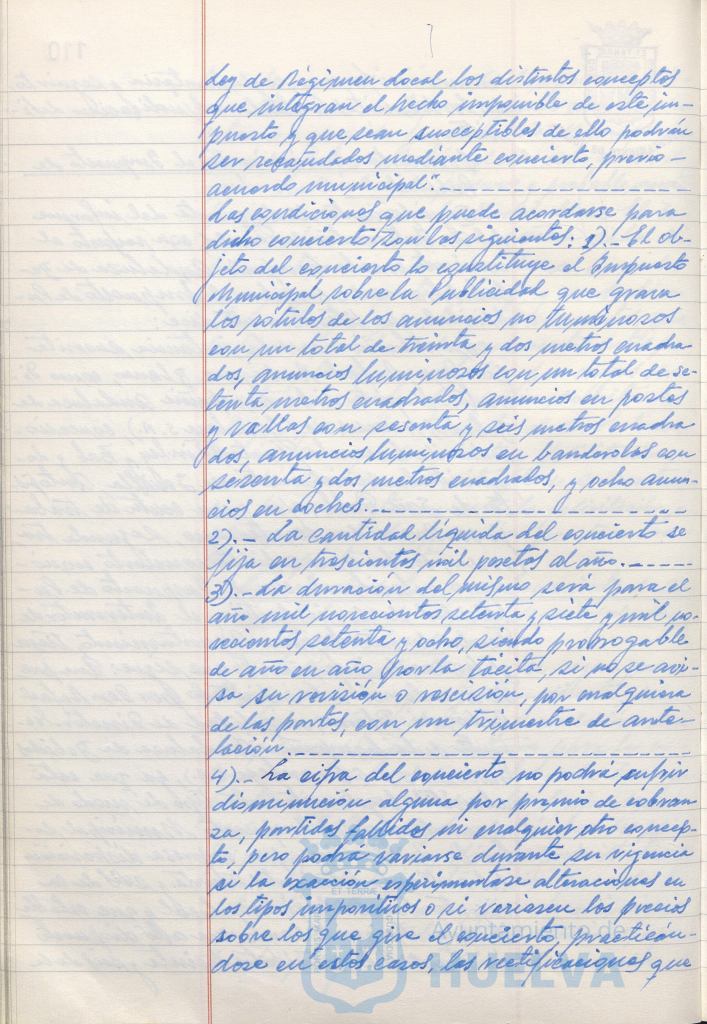 Ley de Régimen Local los distintos conceptos
que integran el hecho imponible de este im-
puesto y que sean susceptibles de ello podrán
ser recaudados mediante concierto, previo
acuerdo municipal".
Las condiciones que puede acordarse para
dicho concierto son las siguientes: 1).- El ob-
jeto del concierto lo constituye el Impuesto
Municipal sobre la Publicidad que grava
los rótulos de los anuncios no luminosos
con un total de treinta y dos metros cuadra-
dos, anuncios luminosos con un total de se-
tenta metros cuadrados, anuncios en postes
y vallas con sesenta y seis metros cuadra
dos, anuncios luminosos en banderolas con
sesenta y dos metros cuadrados, y ocho anun-
cios en coches.
2).- La cantidad líquida del concierto se
fija en trescientas mil pesetas al año.
3).- La duración del mismo será para el
año mil novecientos setenta y siete y mil no-
vecientos setenta y ocho, siendo prorrogable
de año en año por la tácita, si no se avi-
sa su revisión o rescisión, por cualquiera
de las partes, con un trimestre de ante-
lación.
4).- La cifra del concierto no podrá sufrir
disminución alguna por premio de cobran
za, partidas fallidas ni cualquier otro concep-
to, pero podrá variarse durante su vigencia
si la exacción experimentase alteraciones en
los tipos impositivos o si variasen los precios
sobre los que gire el concierto, practicán-
dose en estos casos, las rectificaciones que
ET TERRÆ
Ayuntamiento de
HUELVA
110